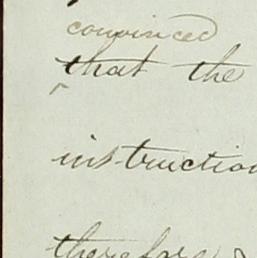 convinced
that the
instruction
therefore